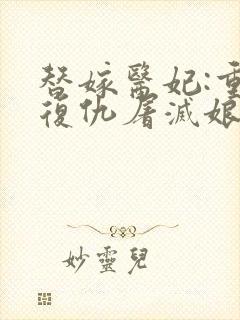 替嫁醫妃:重
復仇屠滅娘
妙靈兒